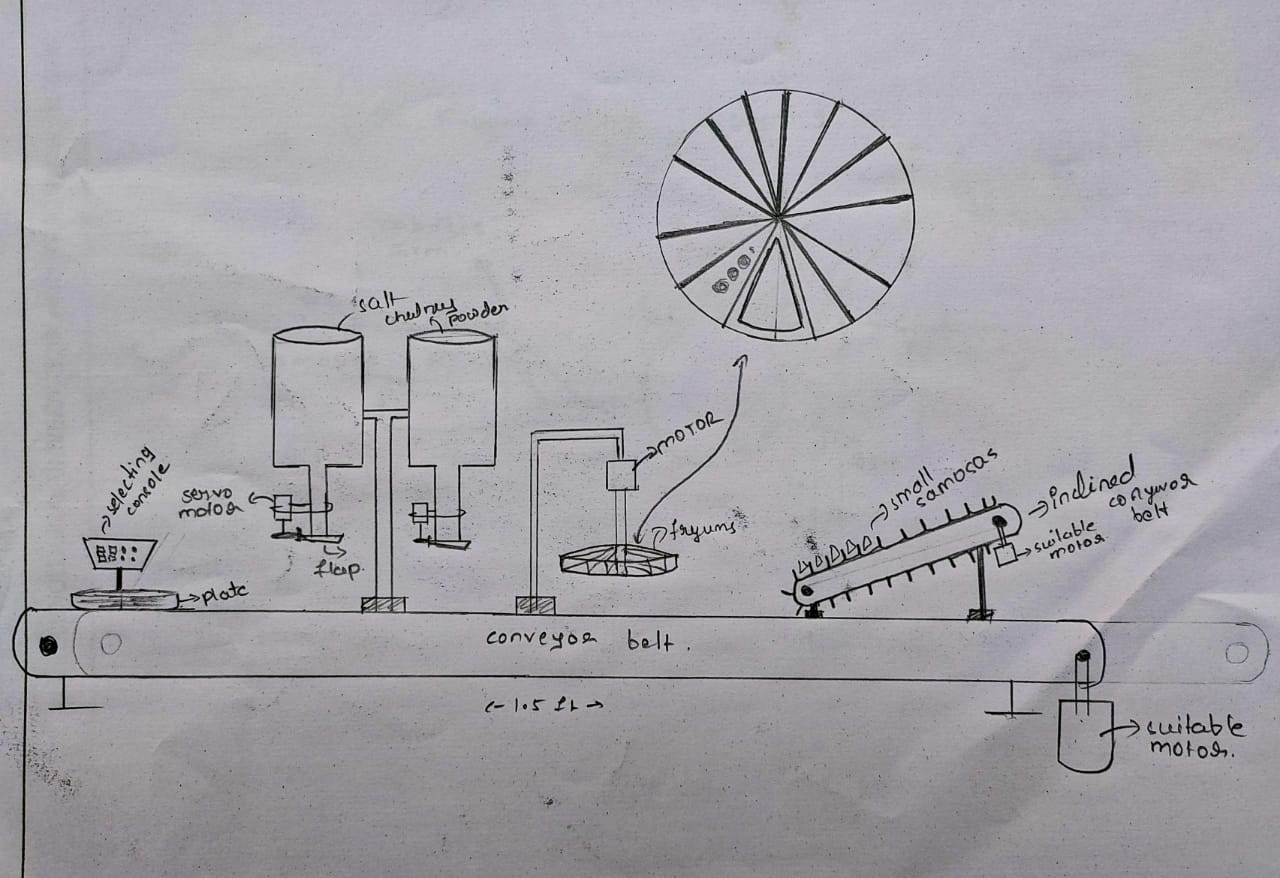 salt
chutney
powder
MOTOR
selecting
console
servo
motor
flap
plate
fryums
small
samocas
inclined
conyvor
belt
suitable
motor
conveyor belt.
<- 1.5 ft ->
suitable
motor.